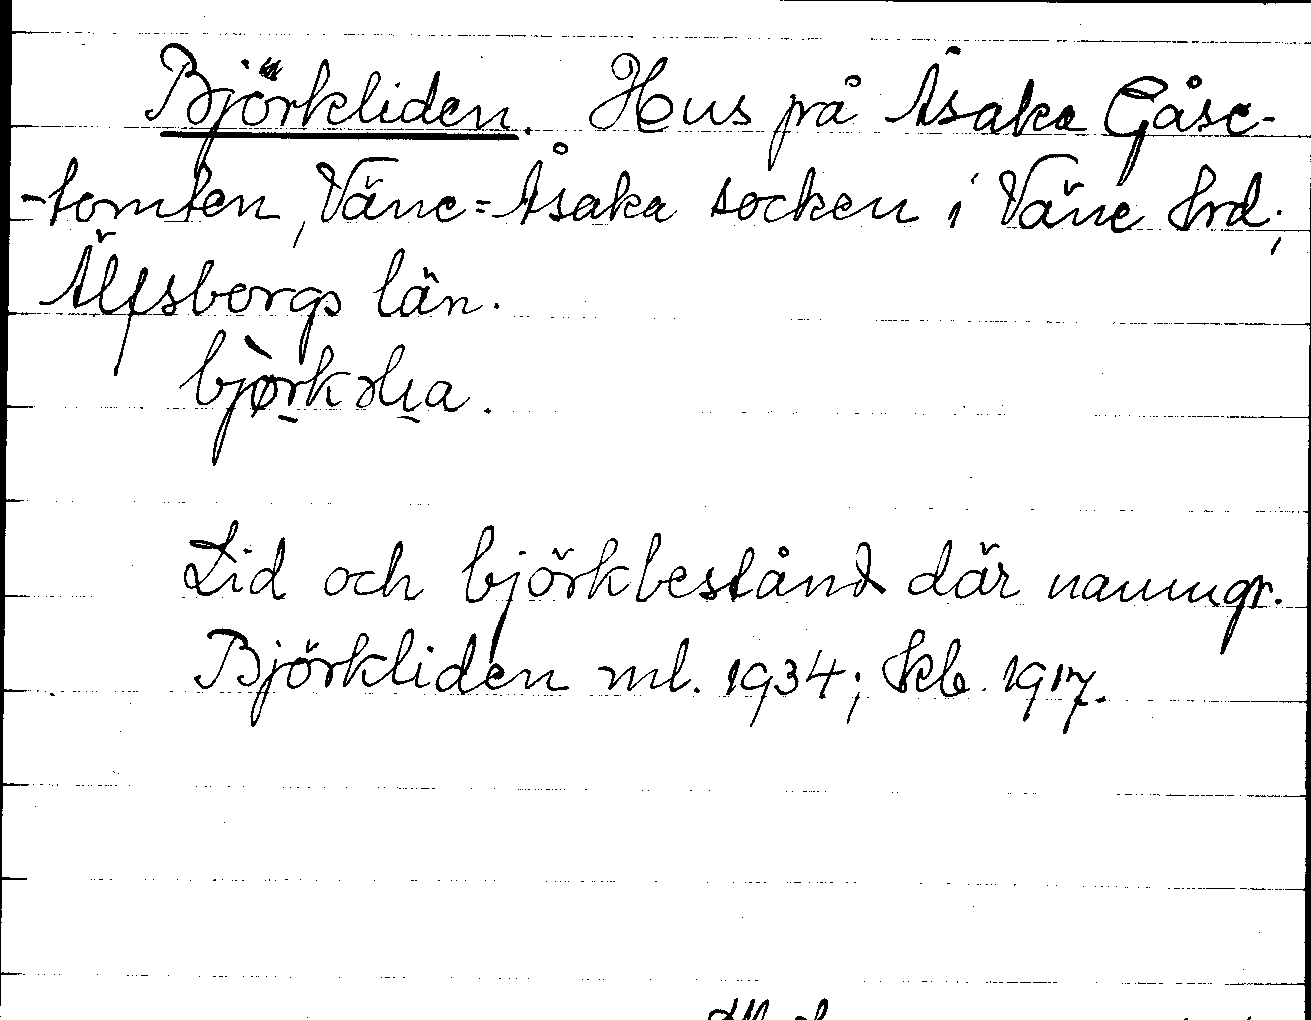 Björkliden. Hus på Åsaka Gåse-
-tomten, Väne=Åsaka socken i Väne hrd,
Älfsborgs län.
Lid och björkbestånd där namngr.
Björkliden ml. 1934; kb. 1917.